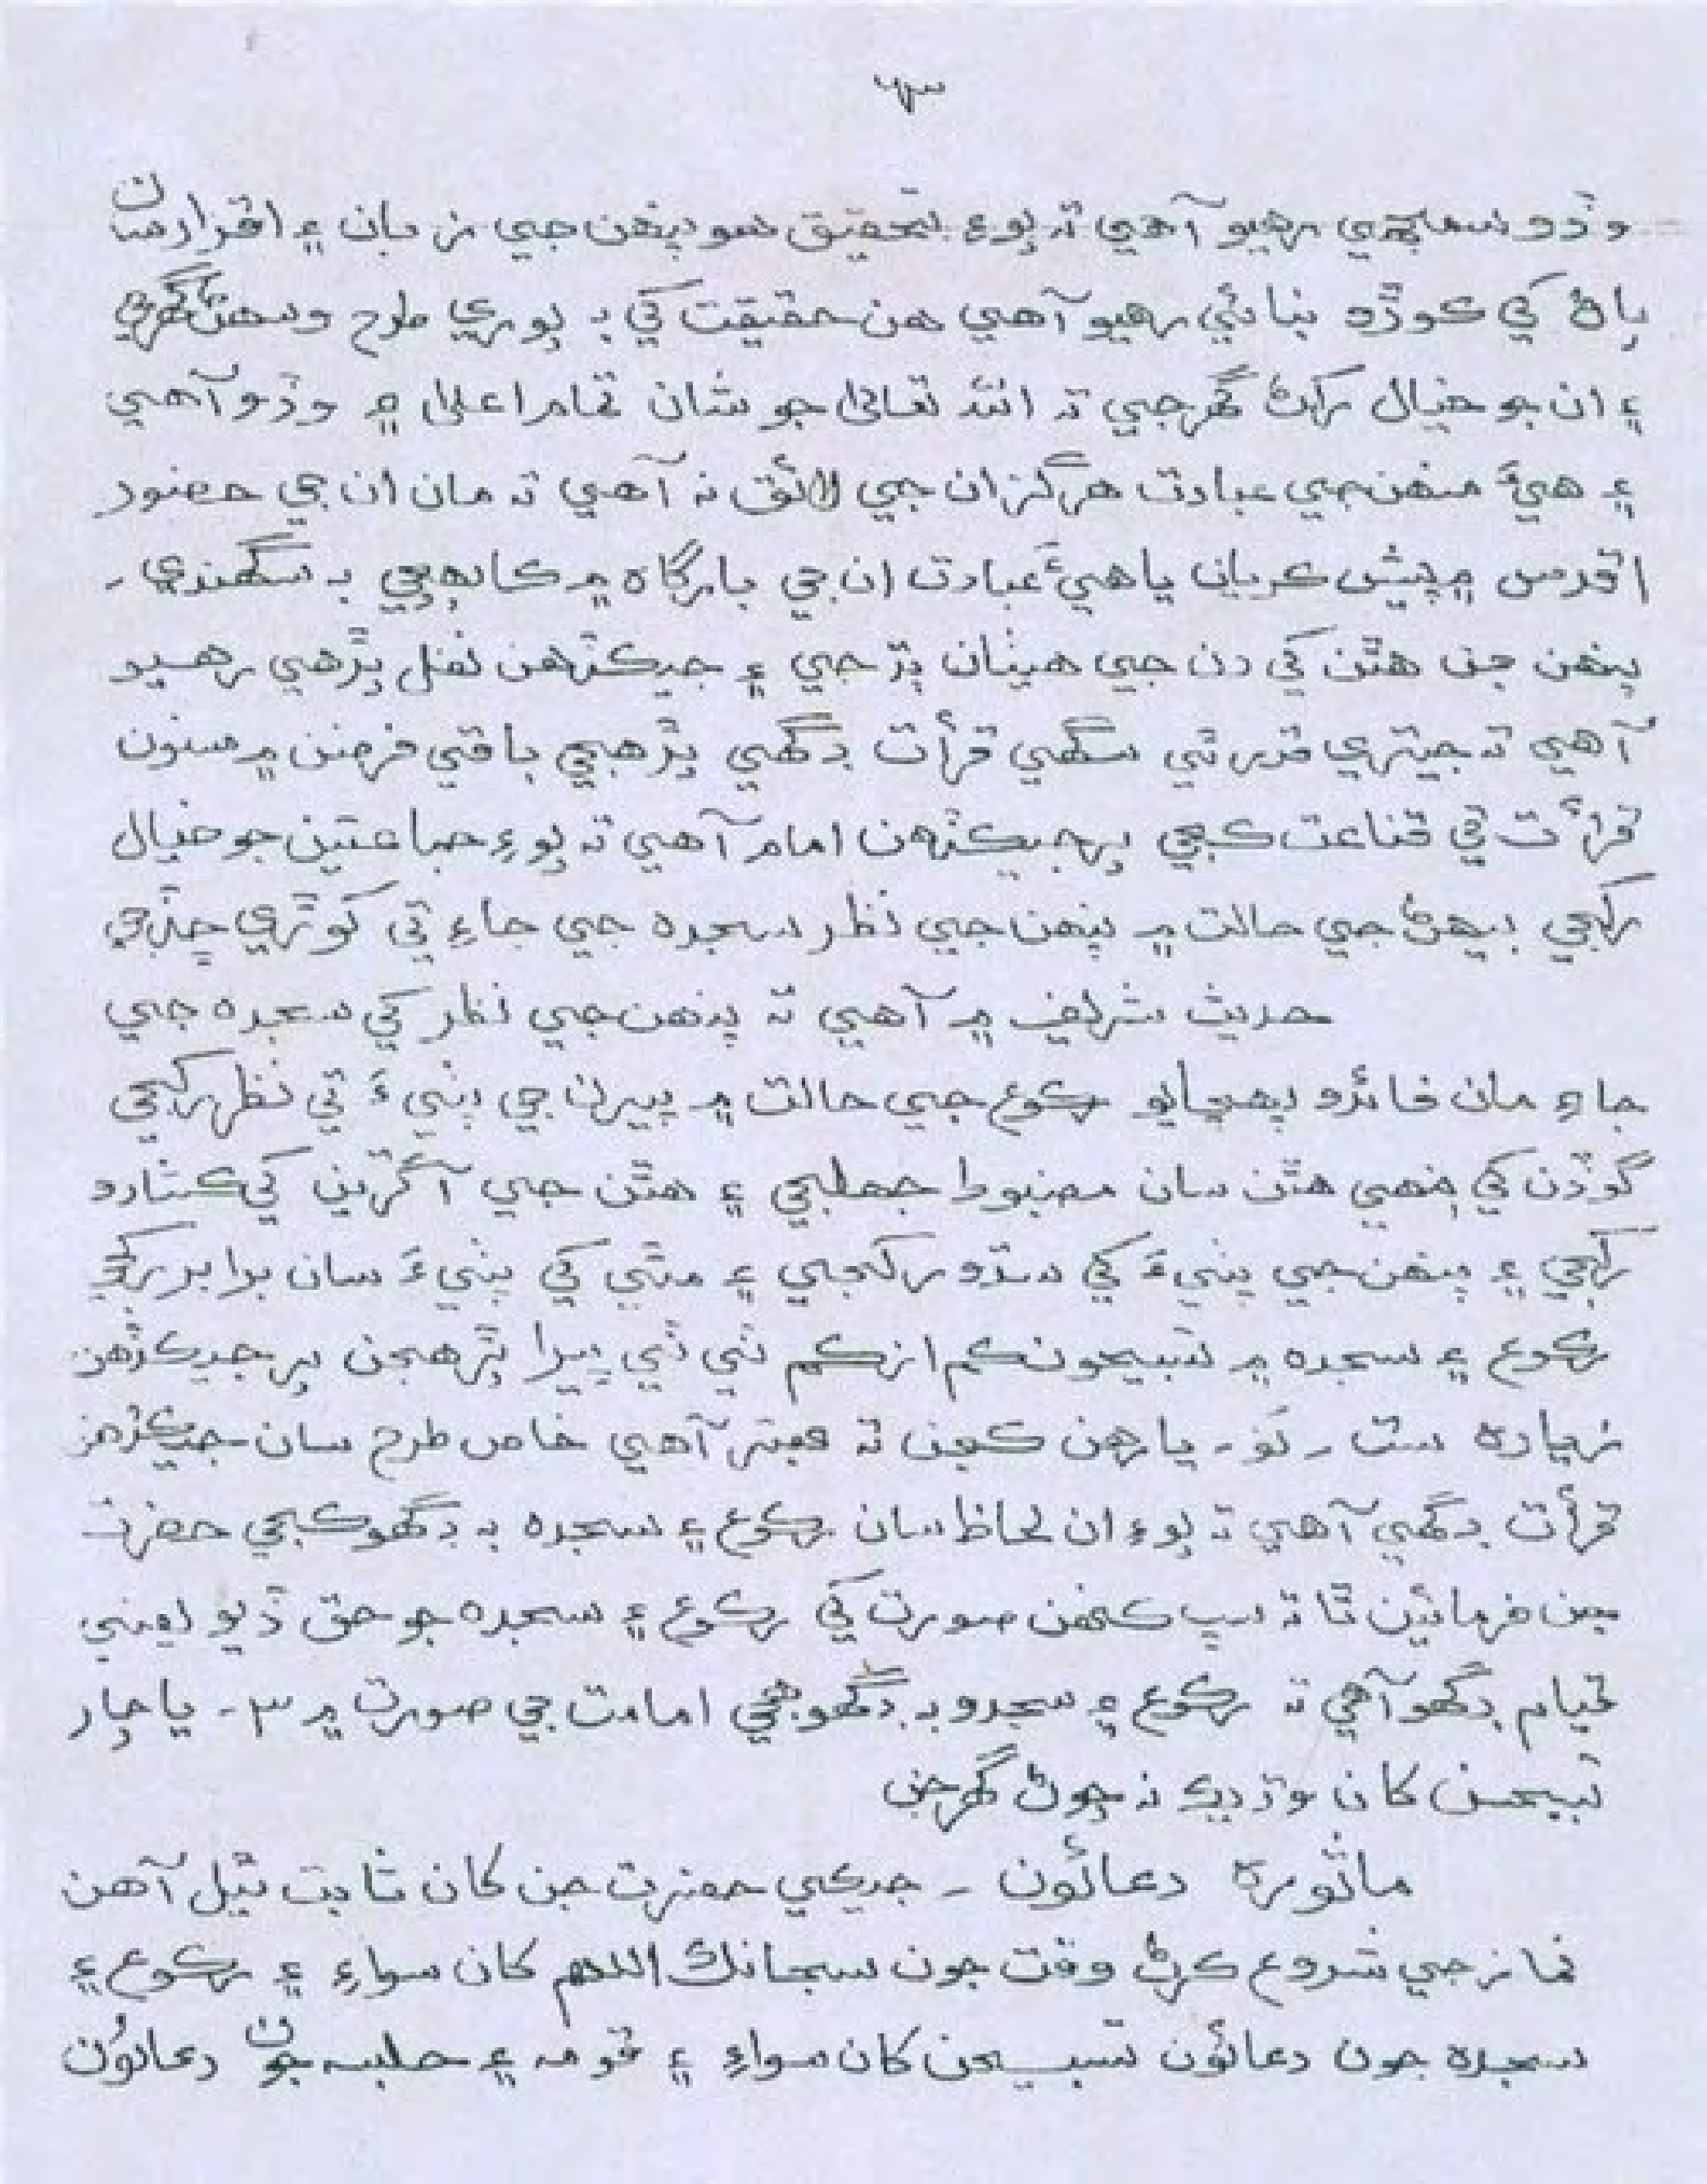 وڏو سمجهي رهيو آهي ته پوءِ تحقيق هو پنهن جي زبان ۽ اقرار سان
پاڻ کي ڪوڙو بنائي رهيو آهي هن حقيقت کي به پوري طرح وسهڻ گهرجي
۽ ان جو خيال رکڻ گهرجي ته الله تعاليٰ جو شان تمام اعليٰ ۾ وڏو آهي
۽ هيءَ منهن جي عبادت هرگز ان جي لائق نه آهي ته مان ان جي حضور
اقدس ۾ پيش ڪريان يا هيءَ عبادت ان جي بارگاه ۾ ڪا پهچي به سگهندي -
پنهن جن هٿن کي دن جي هيٺان ٻڌجي ۽ جيڪڏهن نفل پڙهي رهيو
آهي ته جيتري قدر ٿي سگهي قرأت ڊگهي پڙهجي باقي فرضن ۾ مسنون
قرأت تي قناعت ڪجي پر جيڪڏهن امام آهي ته پوءِ جماعتين جو خيال
رکجي بيهڻ جي حالت ۾ پنهن جي نظر سجده جي جاءِ تي کوڙي ڇڏجي
حديث شريف ۾ آهي ته پنهن جي نظر کي سجده جي
جاءِ مان فائدو پهچايو رڪوع جي حالت ۾ پيرن جي پٺيءَ تي نظر رکجي
گوڏن کي ٻنهي هٿن سان مضبوط جهلجي ۽ هٿن جي آڱرين کي ڪشادو
رکجي ۽ پنهن جي پٺيءَ کي سڌو رکجي ۽ مٿي کي پٺيءَ سان برابر رکجي
رڪوع ۽ سجده ۾ تسبيحون ڪم از ڪم ٽي ٽي ڀيرا پڙهجن پر جيڪڏهن
زياده ست - نَو - يارهن ڪجن ته بهتر آهي خاص طرح سان جيڪڏهن
قرأت ڊگهي آهي ته پوءِ ان لحاظ سان رڪوع ۽ سجده به ڊگهو ڪجي حضرت
جن فرمائين ٿا ته سڀ ڪنهن صورت کي رڪوع ۽ سجده جو حق ڏيو يعني
قيام ڊگهو آهي ته رڪوع ۽ سجدو به ڊگهو ڪجي امامت جي صورت ۾ ٣ - يا چار
تسبيحن کان وڌيڪ نه چوڻ گهرجن
ماثوره دعائون - جيڪي حضرت جن کان ثابت ٿيل آهن
نماز جي شروع ڪرڻ وقت جون سبحانڪ اللهم کان سواءِ ۽ رڪوع ۽
سجده جون دعائون تسبيحن کان سواءِ ۽ قومه ۽ جلسه جون دعائون